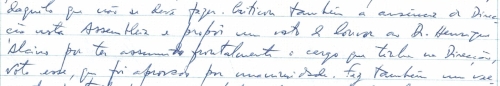 daquilo que não se deve fazer. Criticou também a ausência da Direc-
ção nesta Assembleia e propôs um voto de louvor ao Dr. Henrique
por ter assumido frontalmente o cargo que tinha na Direcção,
voto esse, que foi aprovado por unanimidade. Faz também um